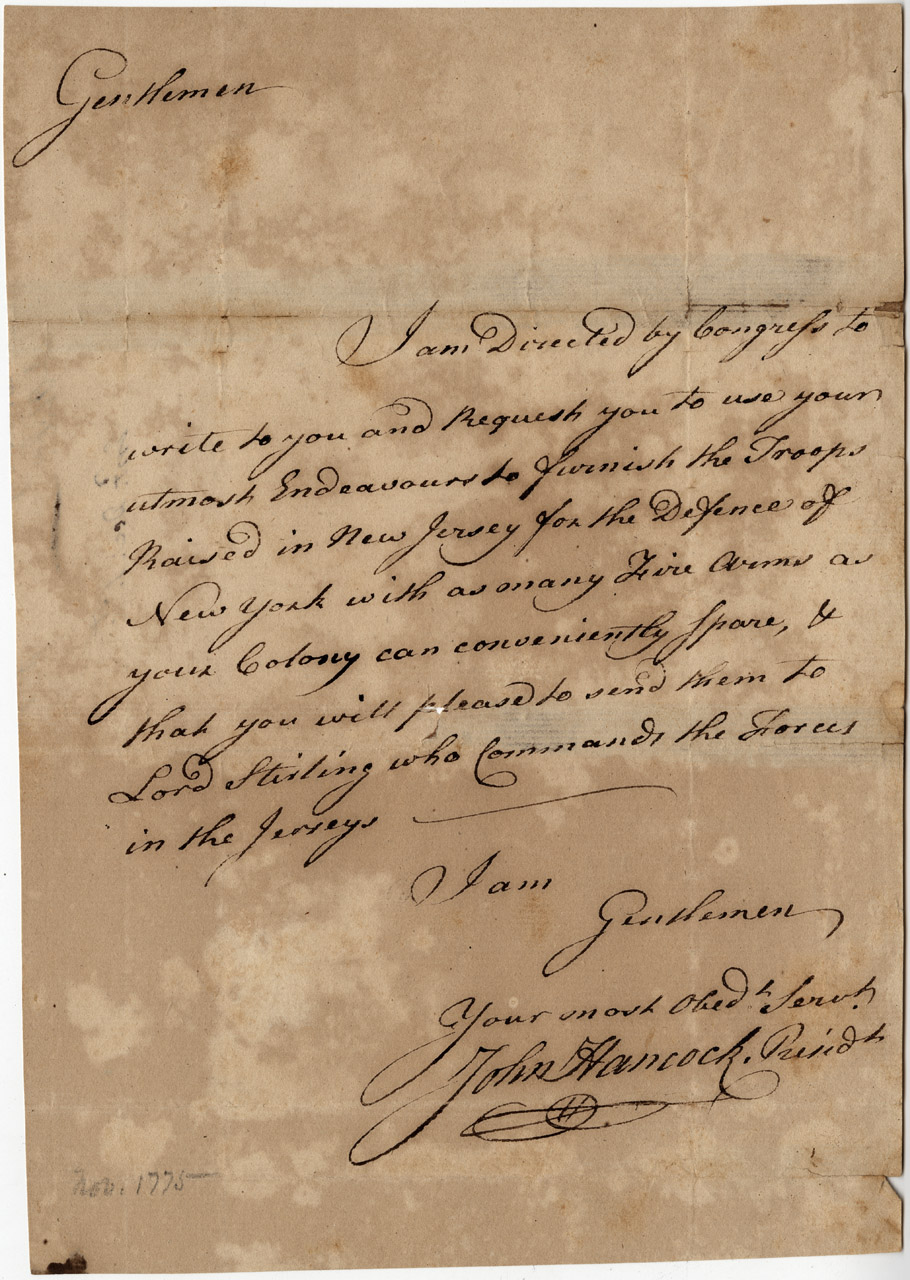 Gentlemen
I am Directed by Congress to
write to you and Request you to use your
utmost Endeavours to furnish the Troops
Raised in New Jersey for the Defence of
New York with as many Fire Arms as
your Colony can conveniently Spare, &
that you will please to send them to
Lord Stirling who Commands the Forces
in the Jerseys
I am
Gentlemen
Your most Obedt Servt
John Hancock. Presidt
Nov. 1775